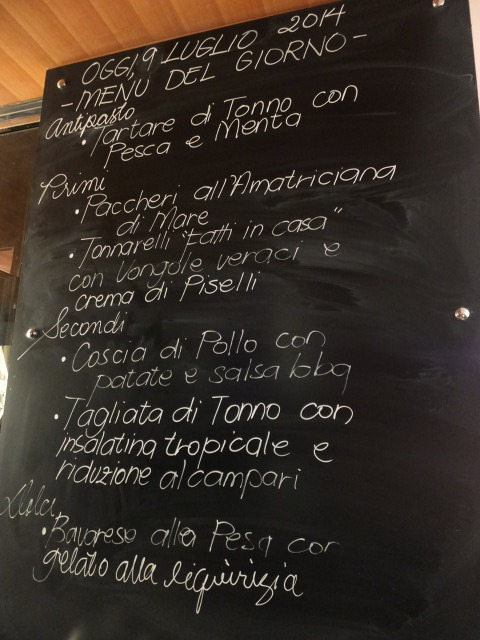 OGGI, 9 LUGLIO 2014
- MENÙ DEL GIORNO -
Antipasto
• Tartare di Tonno con
Pesca e Menta
Primi
• Paccheri all'Amatriciana
di Mare
• Tonnarelli "Fatti in casa"
con Vongole veraci e
crema di Piselli
Secondi
• Coscia di Pollo con
patate e salsa bbq
• Tagliata di Tonno con
insalatina tropicale e
riduzione al campari
Dolci
• Bavarese alla Pesca con
gelato alla liquirizia